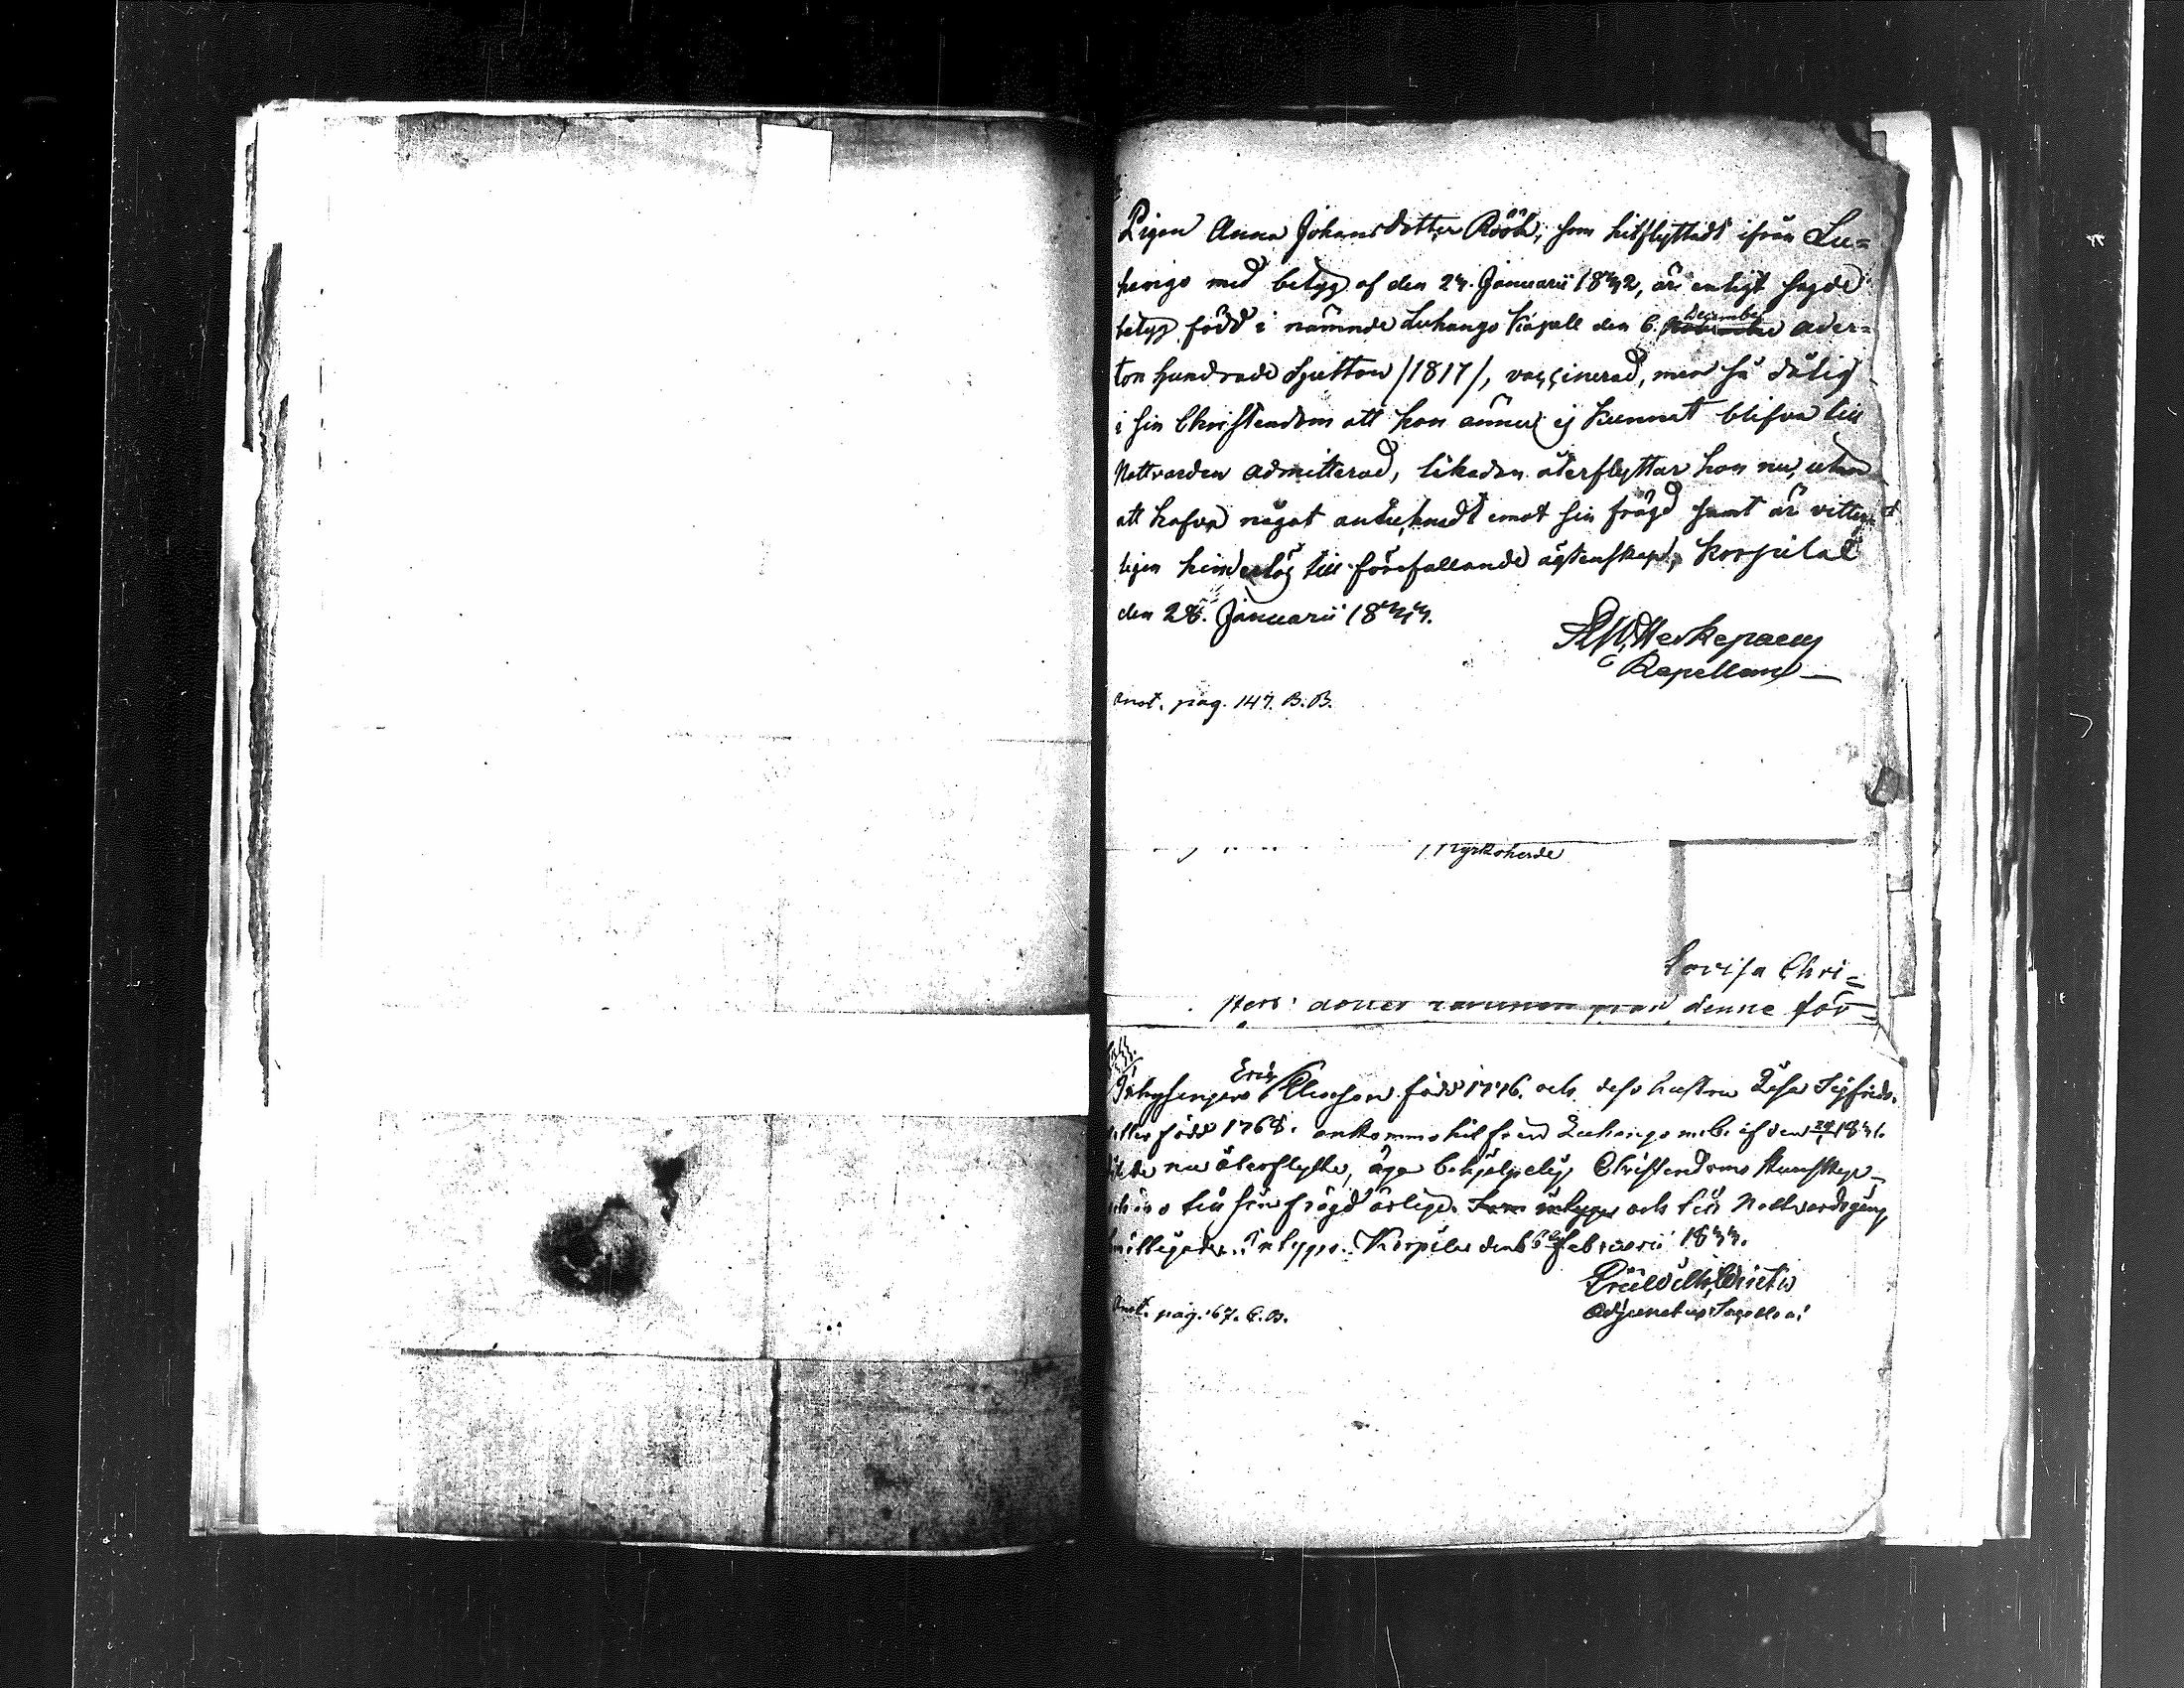 Pigan Anna Johansdotter Röök, som hitflyttadt ifrån Lu=
hango med betyg af den 24. Januarii 1842, är enligt sagde
betyg född i nämnde Luhango Kapell den 6. December ader=
ton hundrade Sjutton /1817/, vaccinerad, men så dålig
i sin Christendom att hon ännu ej kunnat blifva till
Nattvarden admitterad, likadan återflyttar hon nu, utan
att hafva något anteknadt emot sin frägd samt är vitter=
ligen hinderlös till förefallande ägtenskap, Korpilax
den 28. Januarii 1844.
Kapellan
Anot. pag. 147. B.B.
Kyrkoherde
Lovisa Chri=
denne för=
Inhysingen Eric Ericsson född 1776. och dess hustru Lisa Sigfrids-
dotter född 1768. ankomne hit från Luhango m. b. af den 1841.
nu återflytta, äga behjelpelig Christendoms kunskap
äro till sin frägd ärlige och till Nattvardsgång
intygas. Korpilax den 6 Februarii 1844.
Adjunctus Sacelli
Anot. pag. 67. C.B.